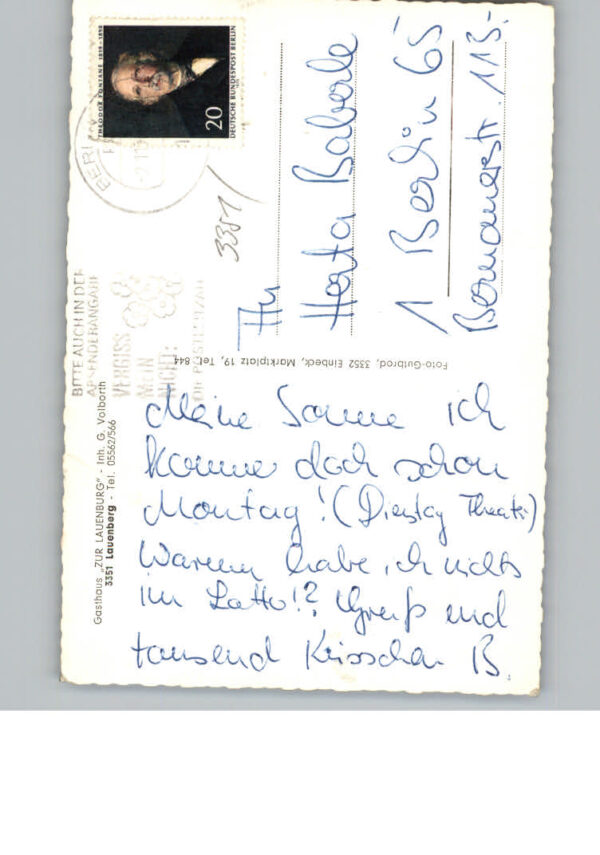 Meine Sonne ich
komme doch schon
Montag! (Dienstag Theater)
Warum habe ich nichts
im Lotto!? Gruß und
tausend Küsschen B.
An
Herta Baberle
1 Berlin 65
Bernauerstr. 113-
3351/
THEODOR FONTANE 1819-1898
20
DEUTSCHE BUNDESPOST BERLIN
BERLIN
BITTE AUCH IN DER
ABSENDERANGABE
VERGISS
MEIN
NICHT:
DIE POSTLEITZAHL
Foto-Gutbrod, 3352 Einbeck, Marktplatz 19, Tel. 844
Gasthaus „ZUR LAUENBURG" - Inh. G. Volborth
3351 Lauenberg - Tel. 05562/566